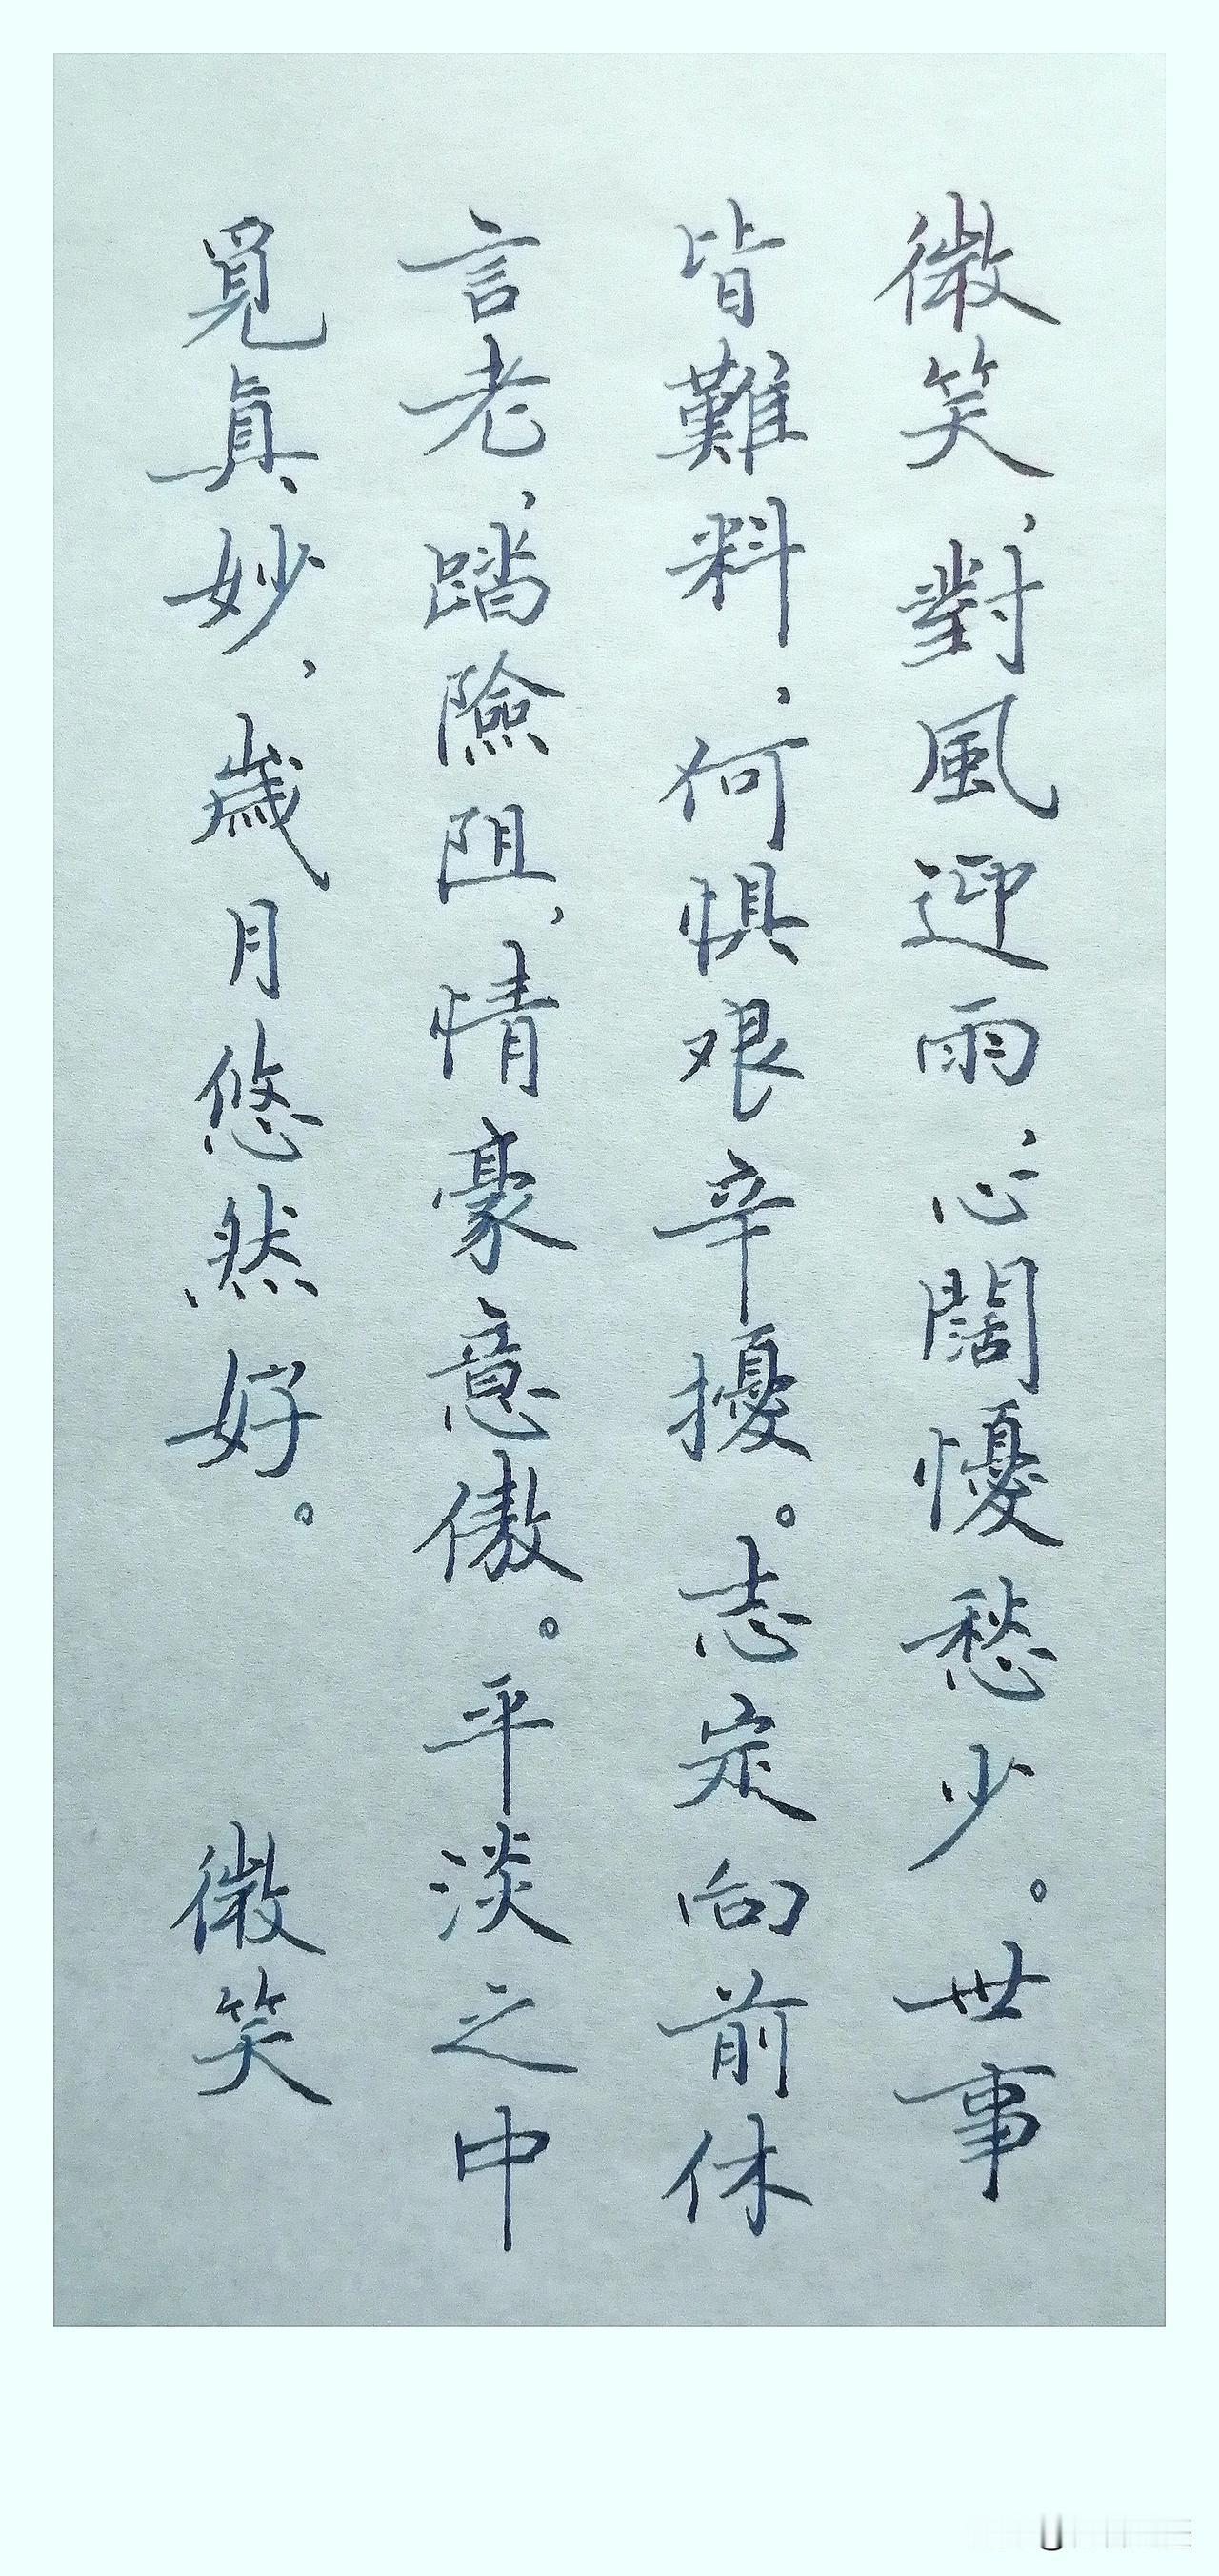 微笑，對風迎雨，心闊懮愁少。世事
皆難料，何惧艰辛擾。志定向前休
言老，踏險阻，情豪意傲。平淡之中
覓真妙，歲月悠然好。 微笑